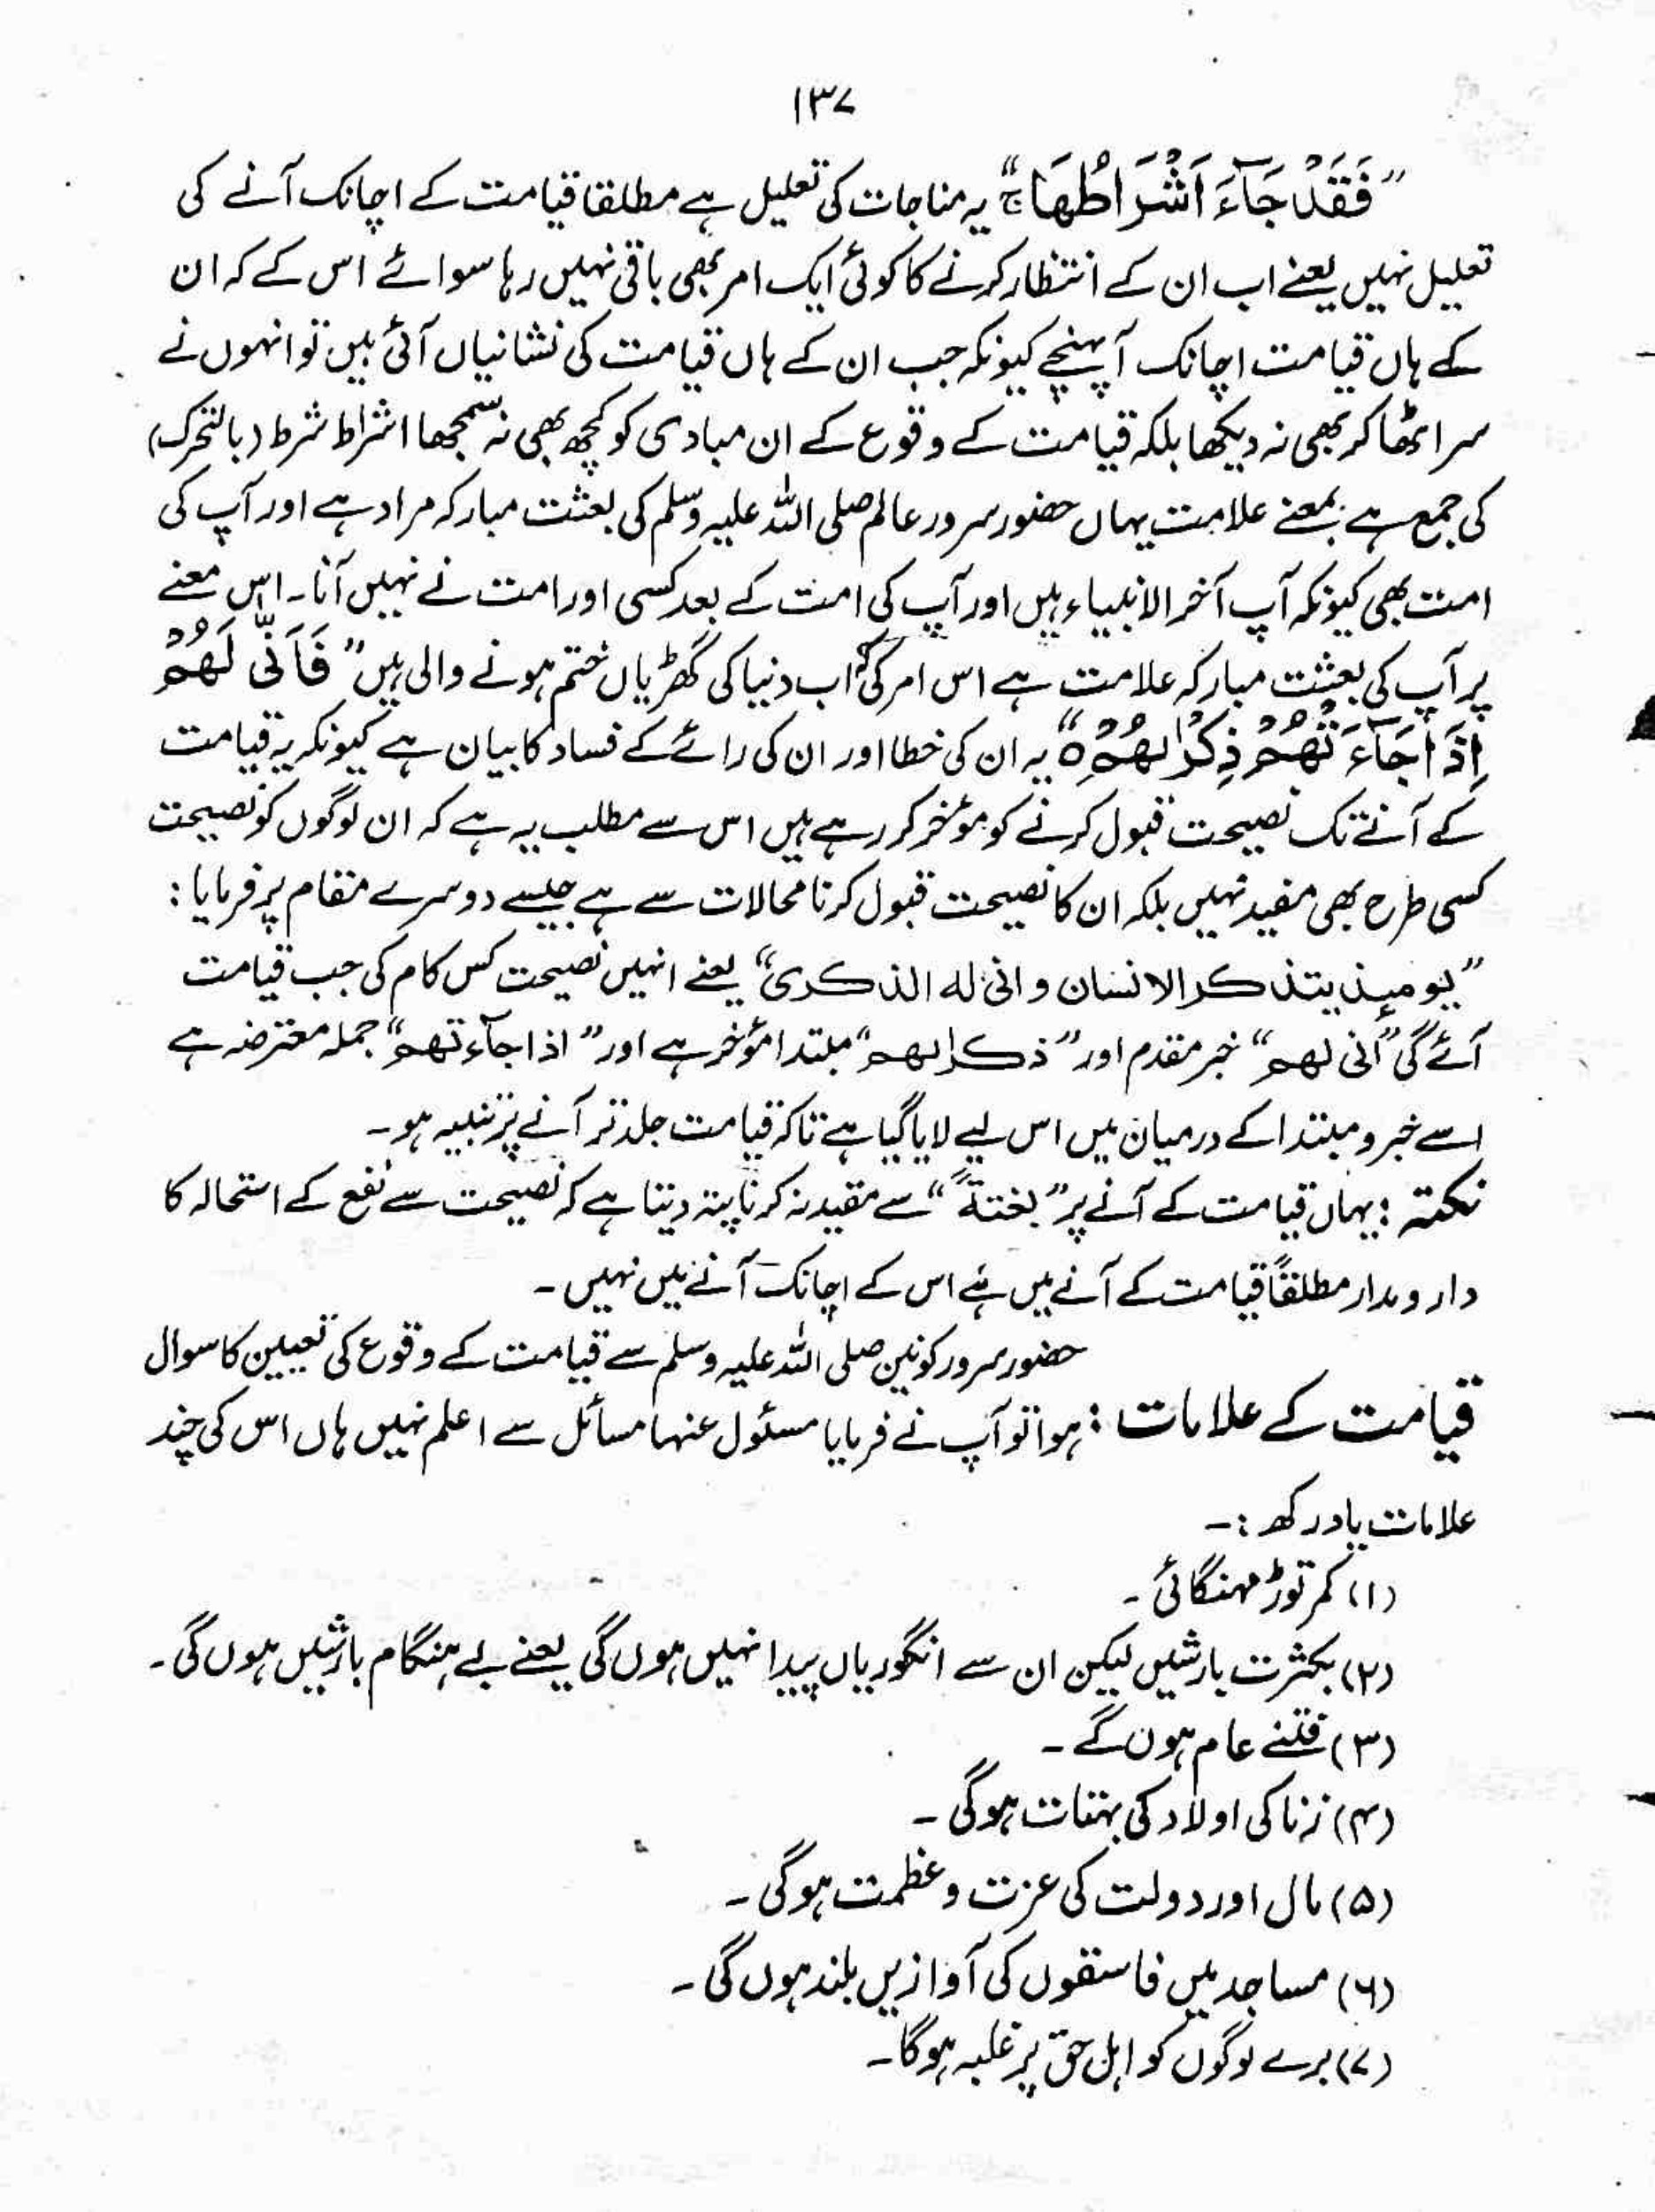 ۱۳۷
”فَقَدْ جَآءَ اَشْرَاطُهَا ۚ“ یہ مناجات کی تعلیل ہے مطلقا قیامت کے اچانک آنے کی
تعلیل نہیں یعنے اب ان کے انتظار کرنے کا کوئی ایک امر بھی باقی نہیں رہا سوائے اس کے کہ ان
کے ہاں قیامت اچانک آ پہنچے کیونکہ جب ان کے ہاں قیامت کی نشانیاں آئی ہیں تو انہوں نے
سر اٹھا کر بھی نہ دیکھا بلکہ قیامت کے وقوع کے ان مبادی کو کچھ بھی نہ سمجھا اشراط شرط (بالتحرک)
کی جمع ہے بمعنے علامت یہاں حضور سرور عالم صلی اللہ علیہ وسلم کی بعثت مبارکہ مراد ہے اور آپ کی
امت بھی کیونکہ آپ آخر الانبیاء ہیں اور آپ کی امت کے بعد کسی اور امت نے نہیں آنا۔ اس معنے
پر آپ کی بعثت مبارکہ علامت ہے اس امر کی کہ اب دنیا کی گھڑیاں ختم ہونے والی ہیں ”فَاَنّٰی لَهُمْ
اِذَا جَآءَتْهُمْ ذِكْرٰىهُمْ ۝“ یہ ان کی خطا اور ان کی رائے کے فساد کا بیان ہے کیونکہ یہ قیامت
کے آنے تک نصیحت قبول کرنے کو مؤخر کر رہے ہیں اس سے مطلب یہ ہے کہ ان لوگوں کو نصیحت
کسی طرح بھی مفید نہیں بلکہ ان کا نصیحت قبول کرنا محالات سے ہے جیسے دوسرے مقام پر فرمایا :
”یومئذ یتذکر الانسان وانی له الذکری“ یعنے انہیں نصیحت کس کام کی جب قیامت
آئے گی ”انی لهم“ خبر مقدم اور ”ذکراهم“ مبتدا مؤخر ہے اور ”اذا جآءتهم“ جملہ معترضہ ہے
اسے خبر و مبتدا کے درمیان میں اس لیے لایا گیا ہے تاکہ قیامت جلد تر آنے پر تنبیہ ہو۔
نکتہ : یہاں قیامت کے آنے پر ”بغتةً“ سے مقید نہ کرنا پتہ دیتا ہے کہ نصیحت سے نفع کے استحالہ کا
دار و مدار مطلقاً قیامت کے آنے میں ہے اس کے اچانک آنے میں نہیں ۔
حضور سرور کونین صلی اللہ علیہ وسلم سے قیامت کے وقوع کی تعیین کا سوال
قیامت کے علامات : ہوا تو آپ نے فرمایا مسئول عنہا مسائل سے اعلم نہیں ہاں اس کی چند
علامات یاد رکھ :۔
(۱) کمر توڑ مہنگائی ۔
(۲) بکثرت بارشیں لیکن ان سے انگوریاں پیدا نہیں ہوں گی یعنے بے ہنگام بارشیں ہوں گی ۔
(۳) فتنے عام ہوں گے ۔
(۴) زنا کی اولاد کی بہتات ہوگی ۔
(۵) مال اور دولت کی عزت و عظمت ہوگی ۔
(۶) مساجد میں فاسقوں کی آوازیں بلند ہوں گی ۔
(۷) برے لوگوں کو اہل حق پر غلبہ ہوگا ۔